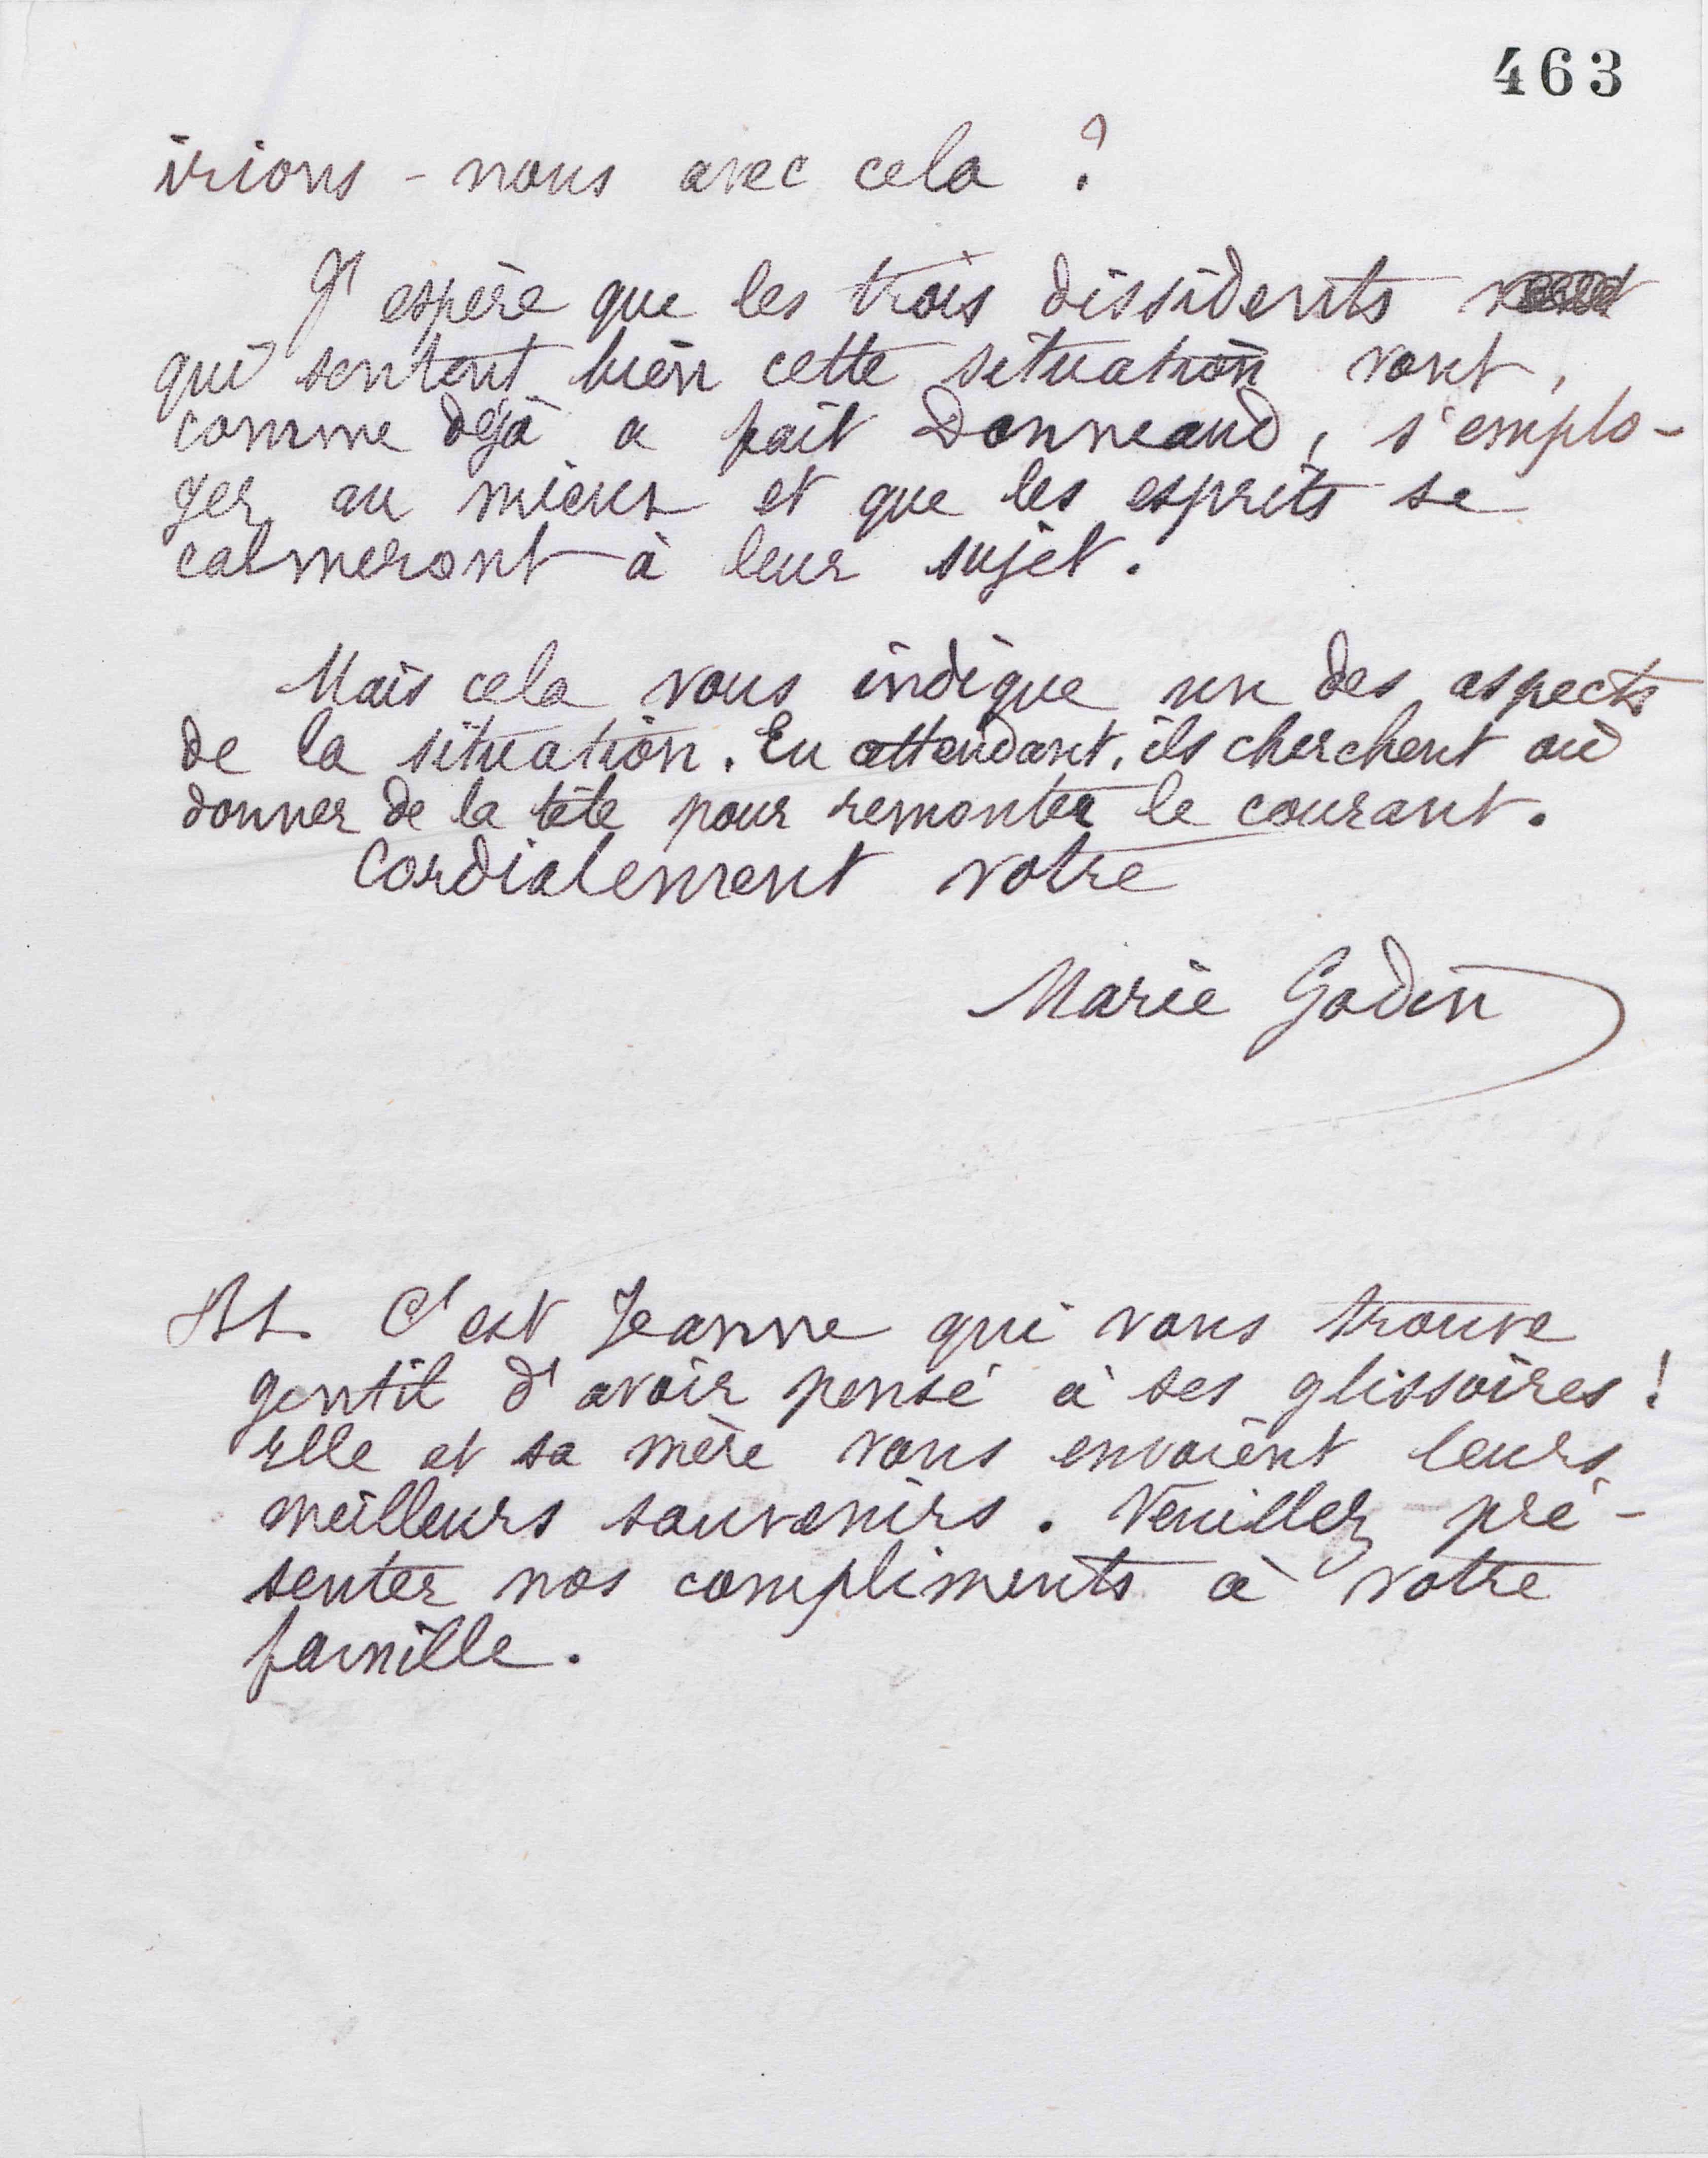 463
irions-nous avec cela ?
J'espère que les trois dissidents
qui sentent bien cette situation vont,
comme déjà a fait Donneaud, s'emplo-
yer au mieux et que les esprits se
calmeront à leur sujet.
Mais cela vous indique un des aspects
de la situation. En attendant, ils cherchent où
donner de la tête pour remonter le courant.
Cordialement votre
Marie Godin
PS. C'est Jeanne qui vous trouve
gentil d'avoir pensé à ses glissoires !
Elle et sa mère vous envoient leurs
meilleurs souvenirs. Veuillez pré-
senter nos compliments à votre
famille.